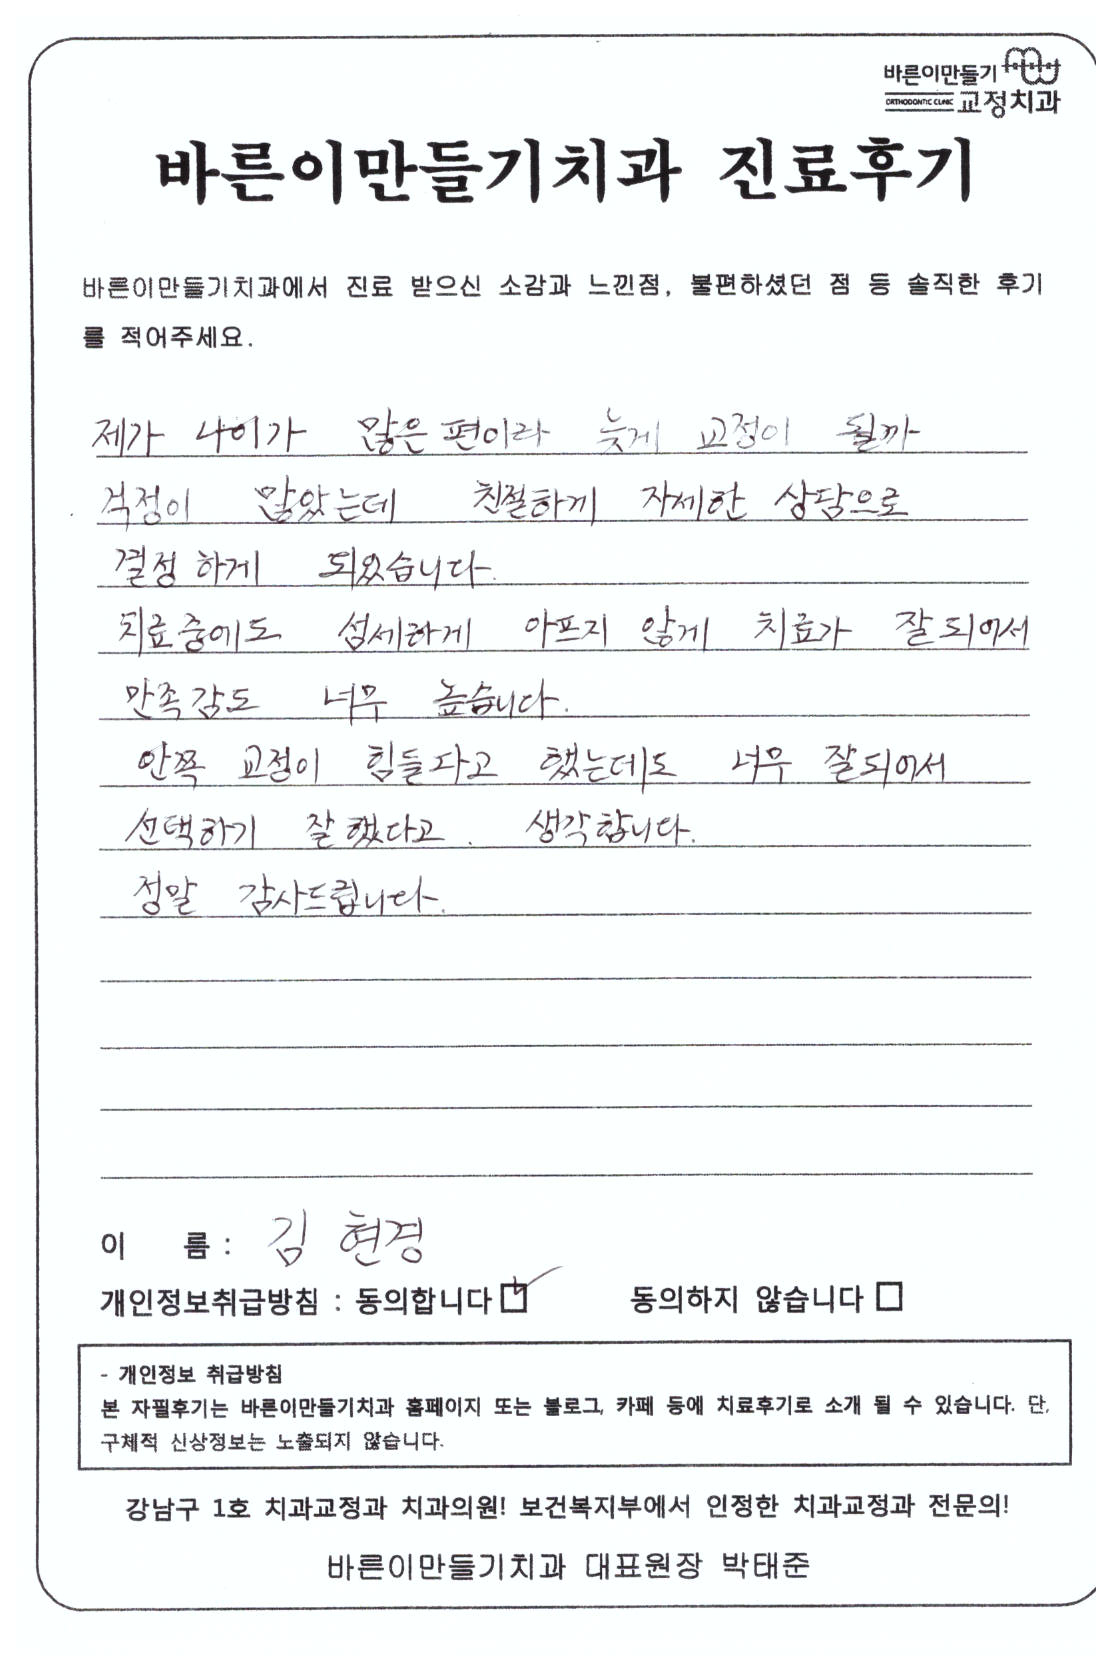 바른이만들기
ORTHODONTIC CLINIC 교정치과
바른이만들기치과 진료후기
바른이만들기치과에서 진료 받으신 소감과 느낀점, 불편하셨던 점 등 솔직한 후기
를 적어주세요.
제가 나이가 많은 편이라 늦게 교정이 될까
걱정이 많았는데 친절하게 자세한 상담으로
결정 하게 되었습니다.
치료중에도 섬세하게 아프지 않게 치료가 잘되어서
만족감도 너무 높습니다.
안쪽 교정이 힘들다고 했는데도 너무 잘되어서
선택하기 잘했다고 생각합니다.
정말 감사드립니다.
이 름 : 김 현경
개인정보취급방침 : 동의합니다 동의하지 않습니다
- 개인정보 취급방침
본 자필후기는 바른이만들기치과 홈페이지 또는 블로그, 카페 등에 치료후기로 소개 될 수 있습니다. 단,
구체적 신상정보는 노출되지 않습니다.
강남구 1호 치과교정과 치과의원! 보건복지부에서 인정한 치과교정과 전문의!
바른이만들기치과 대표원장 박태준